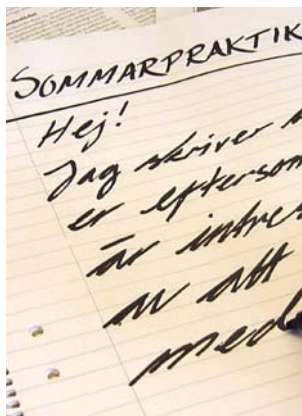 SOMMARPRAKTIK
Hej!
Jag skriver
er eftersom
är intres
av att
med